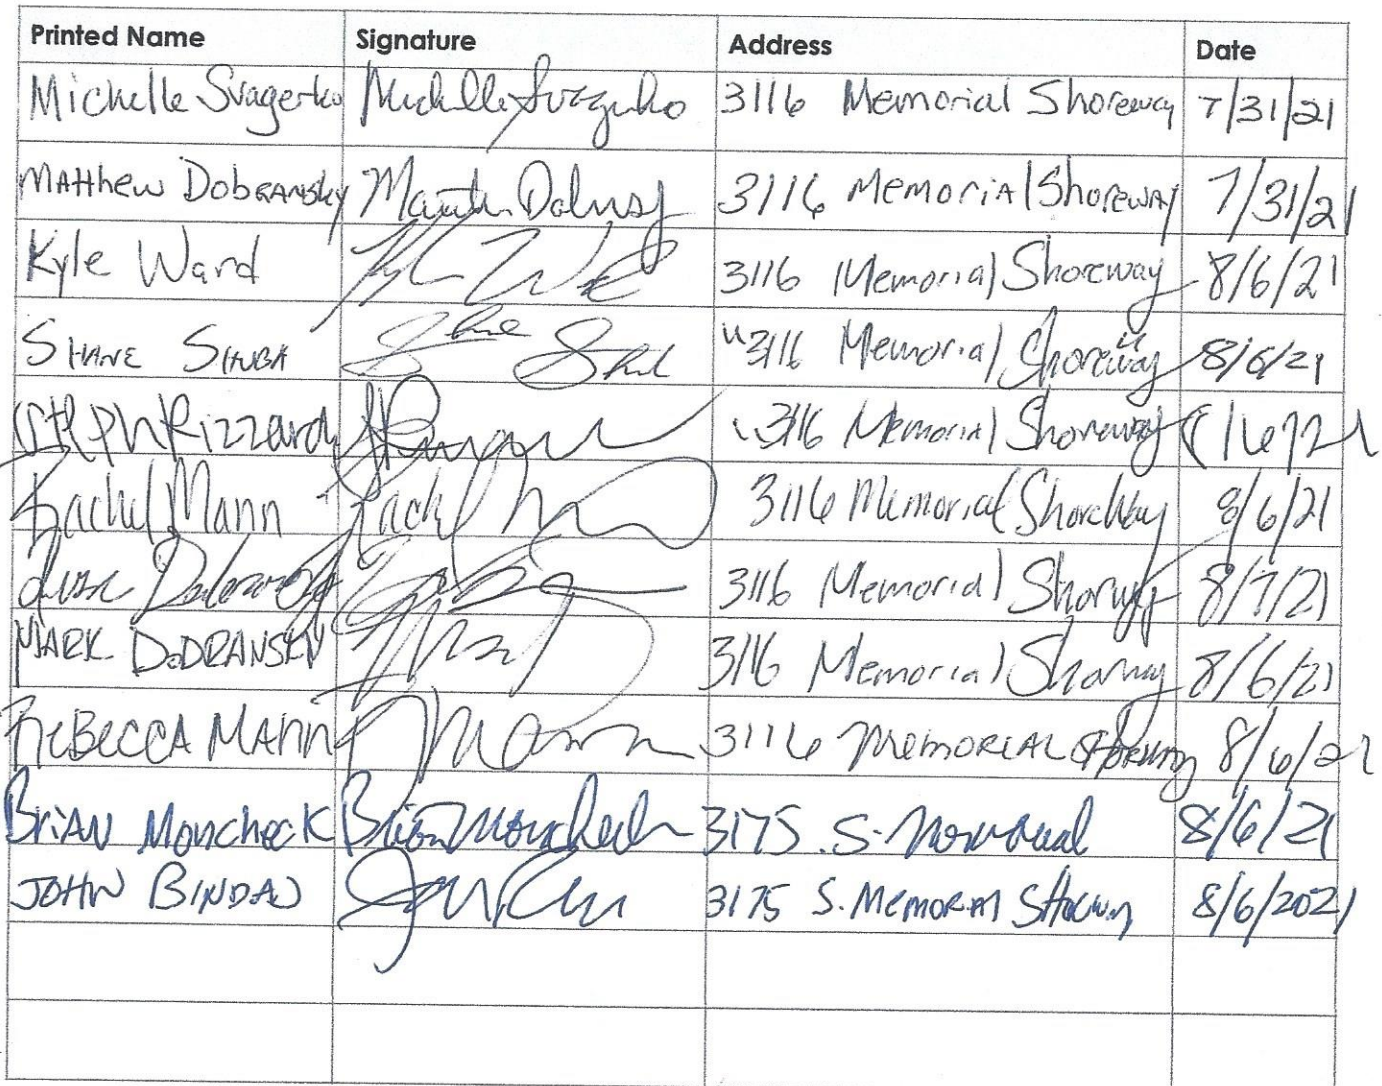 Printed Name Signature Address Date
Michelle Svagerko Michelle Svagerko 3116 Memorial Shoreway 7/31/21
Matthew Dobransky 3116 Memorial Shoreway 7/31/21
Kyle Ward 3116 Memorial Shoreway 8/6/21
Shane Shuba 3116 Memorial Shoreway 8/6/21
Steph Rizzardi 3116 Memorial Shoreway 8/6/21
Rachel Mann Rachel 3116 Memorial Shoreway 8/6/21
3116 Memorial 8/7/21
MARK DOBRANSKY 3116 Memorial 8/6/21
REBECCA MANN Mann 3116 MEMORIAL 8/6/21
BRIAN MONCHECK Brian Moncheck 3175 S. Memorial 8/6/21
JOHN 3175 S. MEMORIAL 8/6/2021